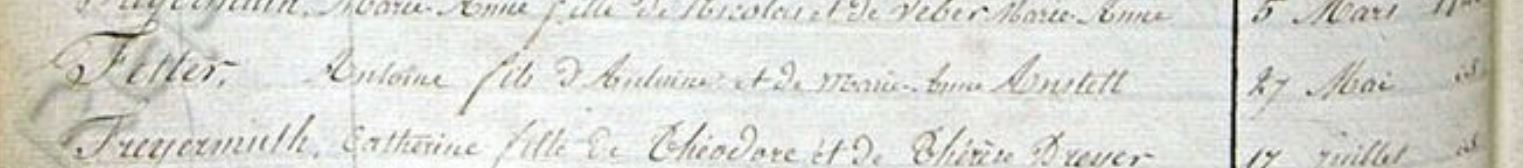 Freyermuth, Marie-Anne fille de Nicolas et de Veber Marie-Anne 5 Mars
Fetter, Antoine fils d'Antoine et de Marie-Anne Anstett 27 Mai id.
Freyermuth, Catherine fille de Théodore et de Thérèse Dreyer 17 Juillet id.